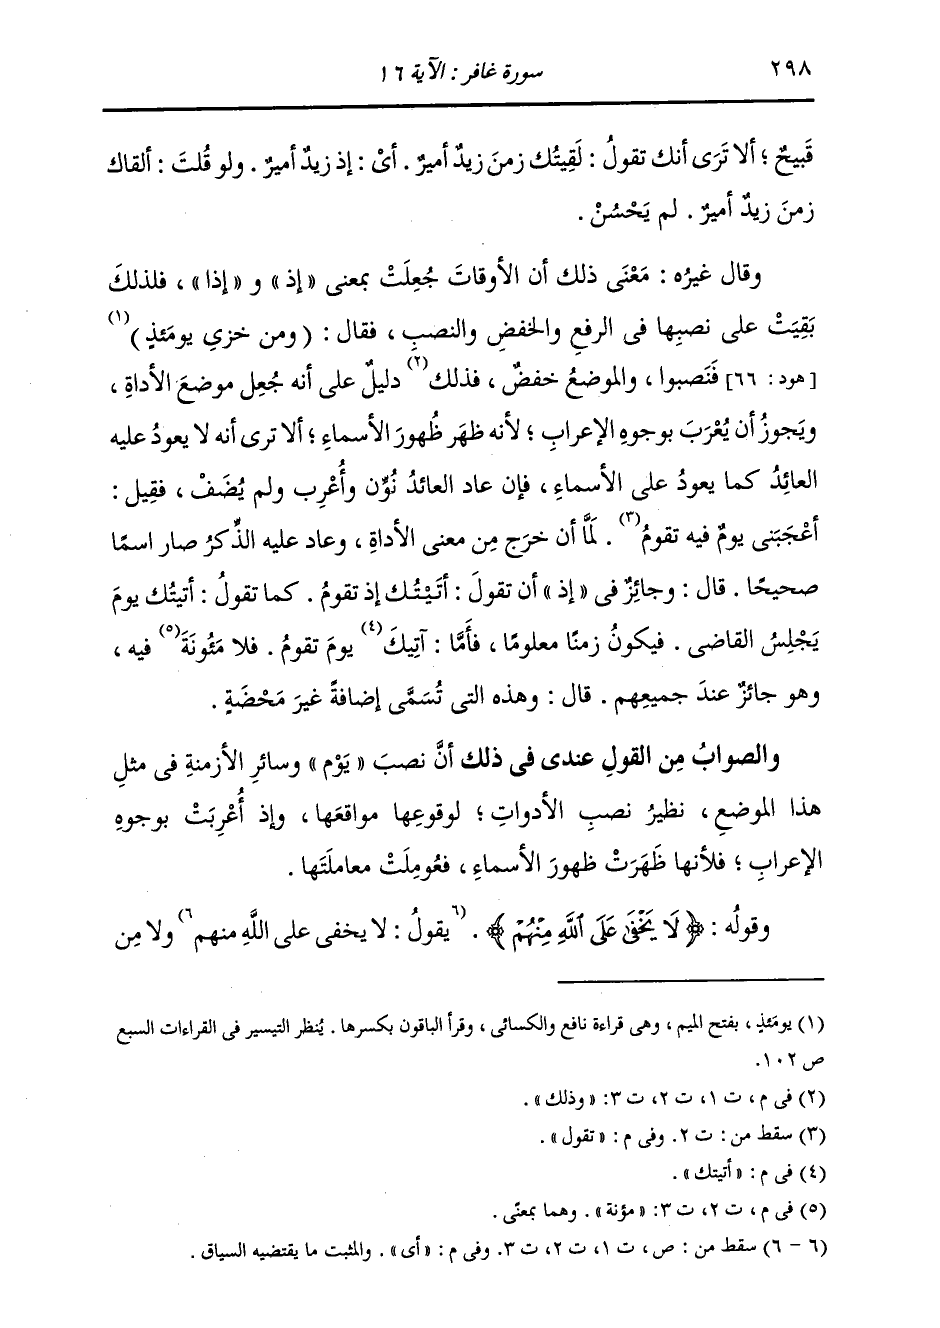 ٢٩٨
سورة غافر : الآية ١٦
قَبِيحٌ ؛ ألا تَرَى أنك تقولُ : لَقِيتُك زمنَ زيدٌ أميرٌ . أىْ : إذ زيدٌ أميرٌ . ولو قُلتَ : ألقاك
زمنَ زيدٌ أميرٌ . لم يَحْسُنْ .
وقال غيرُه : مَعْنَى ذلك أن الأوقاتَ جُعِلَتْ بمعنى « إذ » و « إذا » ، فلذلكَ
بَقِيَتْ على نصبِها فى الرفعِ والخفضِ والنصبِ ، فقال : ( ومن خزي يومَئذٍ )(١)
[هود : ٦٦] فَنَصبوا ، والموضعُ خفضٌ ، فذلك(٢) دليلٌ على أنه جُعِل موضعَ الأداةِ ،
ويَجوزُ أن يُعْرَبَ بوجوهِ الإعرابِ ؛ لأنه ظهَر ظُهورَ الأسماءِ ؛ ألا ترى أنه لا يعودُ عليه
العائِدُ كما يعودُ على الأسماءِ ، فإن عاد العائدُ نُوِّن وأُعْرِب ولم يُضَفْ ، فقِيل :
أعْجَبَنى يومٌ فيه تقومُ(٣) . لَمَّا أن خرَج مِن معنى الأداةِ ، وعاد عليه الذِّكرُ صار اسمًا
صحيحًا . قال : وجائِزٌ فى « إذ » أن تقولَ : أتَيْتُك إذ تقومُ . كما تقولُ : أتيتُك يومَ
يَجْلِسُ القاضى . فيكونُ زمنًا معلومًا ، فأَمَّا : آتِيكَ(٤) يومَ تقومُ . فلا مَئُونَةَ(٥) فيه ،
وهو جائزٌ عندَ جميعِهم . قال : وهذه التى تُسَمَّى إضافةً غيرَ مَحْضَةٍ .
والصوابُ مِن القولِ عندى فى ذلك أنَّ نصبَ « يَوْم » وسائرِ الأزمنةِ فى مثلِ
هذا الموضعِ ، نظيرُ نصبِ الأدواتِ ؛ لوقوعِها مواقعَها ، وإذ أُعْرِبَتْ بوجوهِ
الإعرابِ ؛ فلأنها ظَهَرَتْ ظهورَ الأسماءِ ، فعُومِلَتْ معاملتَها .
وقولُه : ﴿ لَا يَخْفَىٰ عَلَى ٱللَّهِ مِنْهُمْ ﴾ . (٦يقولُ : لا يخفى على اللَّهِ منهم٦) ولا مِن
(١) يومَئذٍ ، بفتح الميم ، وهى قراءة نافع والكسائى ، وقرأ الباقون بكسرها . يُنظر التيسير فى القراءات السبع
ص ١٠٢.
(٢) فى م ، ت ١، ت ٢، ت ٣: « وذلك » .
(٣) سقط من : ت ٢. وفى م : « تقول » .
(٤) فى م : « أتيتك » .
(٥) فى م ، ت ٢، ت ٣: « مؤنة » . وهما بمعنًى .
(٦ - ٦) سقط من : ص ، ت ١، ت ٢، ت ٣. وفى م : « أى » . والمثبت ما يقتضيه السياق .